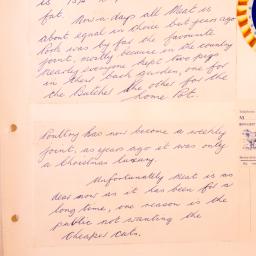 is 75% to
fat. Now-a-days all meat is
about equal in those but years ago
Pork was by far the favourite
joint, mostly because in the country
nearly everyone kept two pigs
in their back garden, one for
the Butcher the other for the
home Pot.
Poultry has now become a weekly
joint, as years ago it was only
a Christmas luxury.
Unfortunately meat is as
dear now as it has been for a
long time, one reason is the
public not wanting the
cheaper cuts.